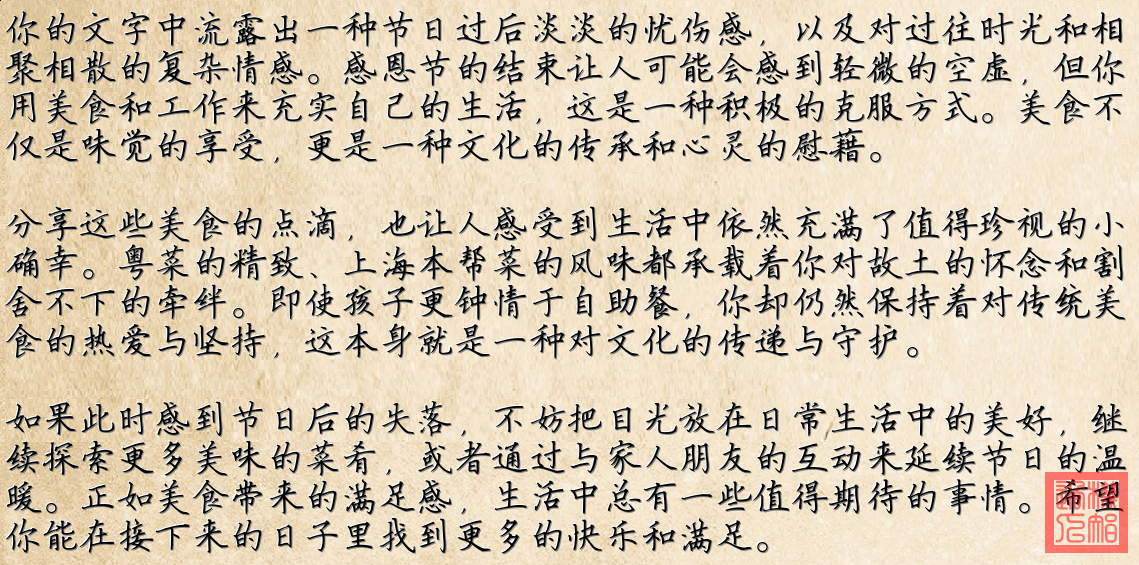 你的文字中流露出一种节日过后淡淡的忧伤感，以及对过往时光和相
聚相散的复杂情感。感恩节的结束让人可能会感到轻微的空虚，但你
用美食和工作来充实自己的生活，这是一种积极的克服方式。美食不
仅是味觉的享受，更是一种文化的传承和心灵的慰藉。
分享这些美食的点滴，也让人感受到生活中依然充满了值得珍视的小
确幸。粤菜的精致、上海本帮菜的风味都承载着你对故土的怀念和割
舍不下的牵绊。即使孩子更钟情于自助餐，你却仍然保持着对传统美
食的热爱与坚持，这本身就是一种对文化的传递与守护。
如果此时感到节日后的失落，不妨把目光放在日常生活中的美好，继
续探索更多美味的菜肴，或者通过与家人朋友的互动来延续节日的温
暖。正如美食带来的满足感，生活中总有一些值得期待的事情。希望
你能在接下来的日子里找到更多的快乐和满足。